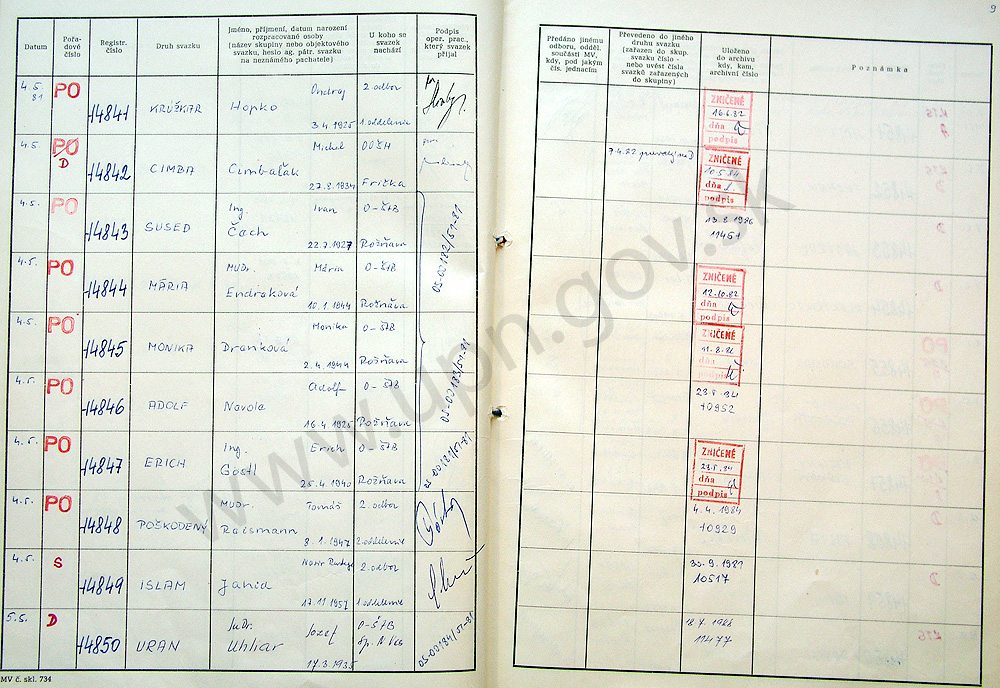 9
Datum
Pořadové číslo
Registr. číslo
Druh svazku
Jméno, příjmení, datum narození rozpracované osoby (název skupiny nebo objektového svazku, heslo ag. pátr. svazku na neznámého pachatele)
U koho se svazek nachází
Podpis oper. prac., který svazek přijal
Předáno jinému odboru, odděl. součásti MV, kdy, pod jakým čís. jednacím
Převedeno do jiného druhu svazku (zařazen do skup. svazku číslo - nebo uvést čísla svazků zařazených do skupiny)
Uloženo do archivu kdy, kam, archivní číslo
Poznámka
4.5. 81 PO 14841 KRÚŽKAR Hopko Ondrej 3.4.1925 2. odbor 1. oddelenie
ZNIČENÉ 16.6.82 dňa podpis
4.5. PO D 14842 CIMBA Cimbaľák Michal 27.8.1934 OOŠH Frička
7.4.82 D
ZNIČENÉ 10.5.84 dňa podpis
4.5. PO 14843 SUSED Ing. Ivan Čach 22.7.1927 O-ŠtB Rožňava
05-00182/51-81
13.8.1986
11451
4.5. PO 14844 MÁRIA MUDr. Mária Endraková 10.1.1944 O-ŠtB Rožňava
ZNIČENÉ 12.10.82 dňa podpis
4.5. PO 14845 MONIKA Monika Dranková 2.4.1944 O-ŠtB Rožňava
05-00183/51-81
ZNIČENÉ dňa podpis
4.5. PO 14846 ADOLF Adolf Navola 16.4.1925 O-ŠtB Rožňava
10952
4.5. PO 14847 ERICH Ing. Erich Göstl 25.4.1940 O-ŠtB Rožňava
ZNIČENÉ 23.5.84 dňa podpis
4.5. PO 14848 POŠKODENÝ MUDr. Tomáš Raismann 8.1.1947 2. odbor 2. oddelenie
4.4.1984
10929
4.5. S 14849 ISLAM Janid 17.11.1957 2. odbor 1. oddelenie
10517
5.5. D 14850 URAN JuDr. Jozef Uhliar 17.3.1935 O-ŠtB Sp. N. Ves
05-00184/51-81
11477
MV č. skl. 734
www.upn.gov.sk